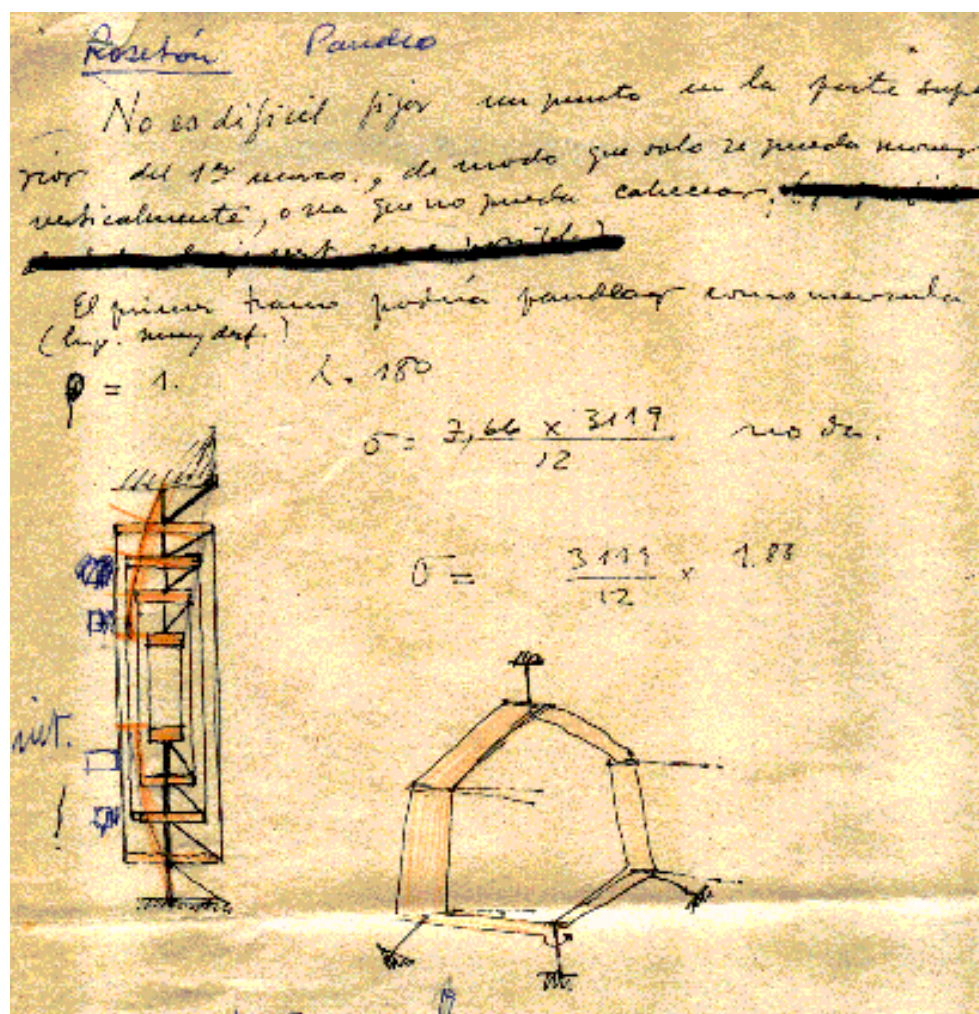 Rosetón Pandeo
No es difícil fijar un punto en la parte supe
rior del 1er marco., de modo que solo se pueda mover
verticalmente, o sea que no pueda cabecear,
El primer tramo podría pandear como mensula
(hip. muy desf.)
φ = 1. λ. 180
σ = 7,66 x 3119 / 12 no da.
σ = 3119 / 12 x 1.88